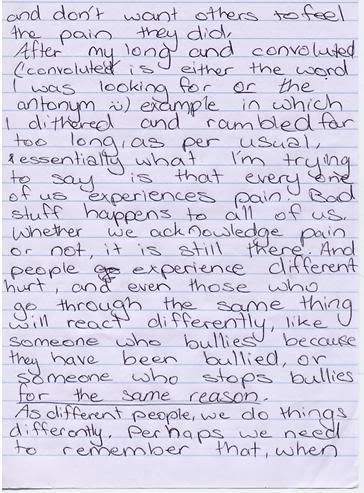 and don't want others to feel
the pain they did.
After my long and convoluted
("convoluted" is either the word
I was looking for or the
antonym ü) example in which
I dithered and rambled far
too long, as per usual,
essentially what I'm trying
to say is that every one
of us experiences pain. Bad
stuff happens to all of us.
Whether we acknowledge pain
or not, it is still there. And
people experience different
hurt, and even those who
go through the same thing
will react differently, like
someone who bullies because
they have been bullied, or
someone who stops bullies
for the same reason.
As different people, we do things
differently. Perhaps we need
to remember that, when